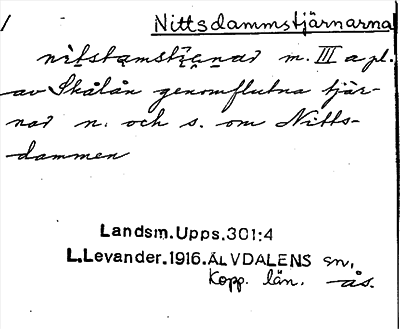 / Nittsdammstjärnarna
m. III a pl.
av Skålån genomflutna tjär-
nar n. och s. om Nitts-
dammen
Landsm.Upps.301:4
L.Levander.1916.ÄLVDALENS sn,
Kopp. län. ås.